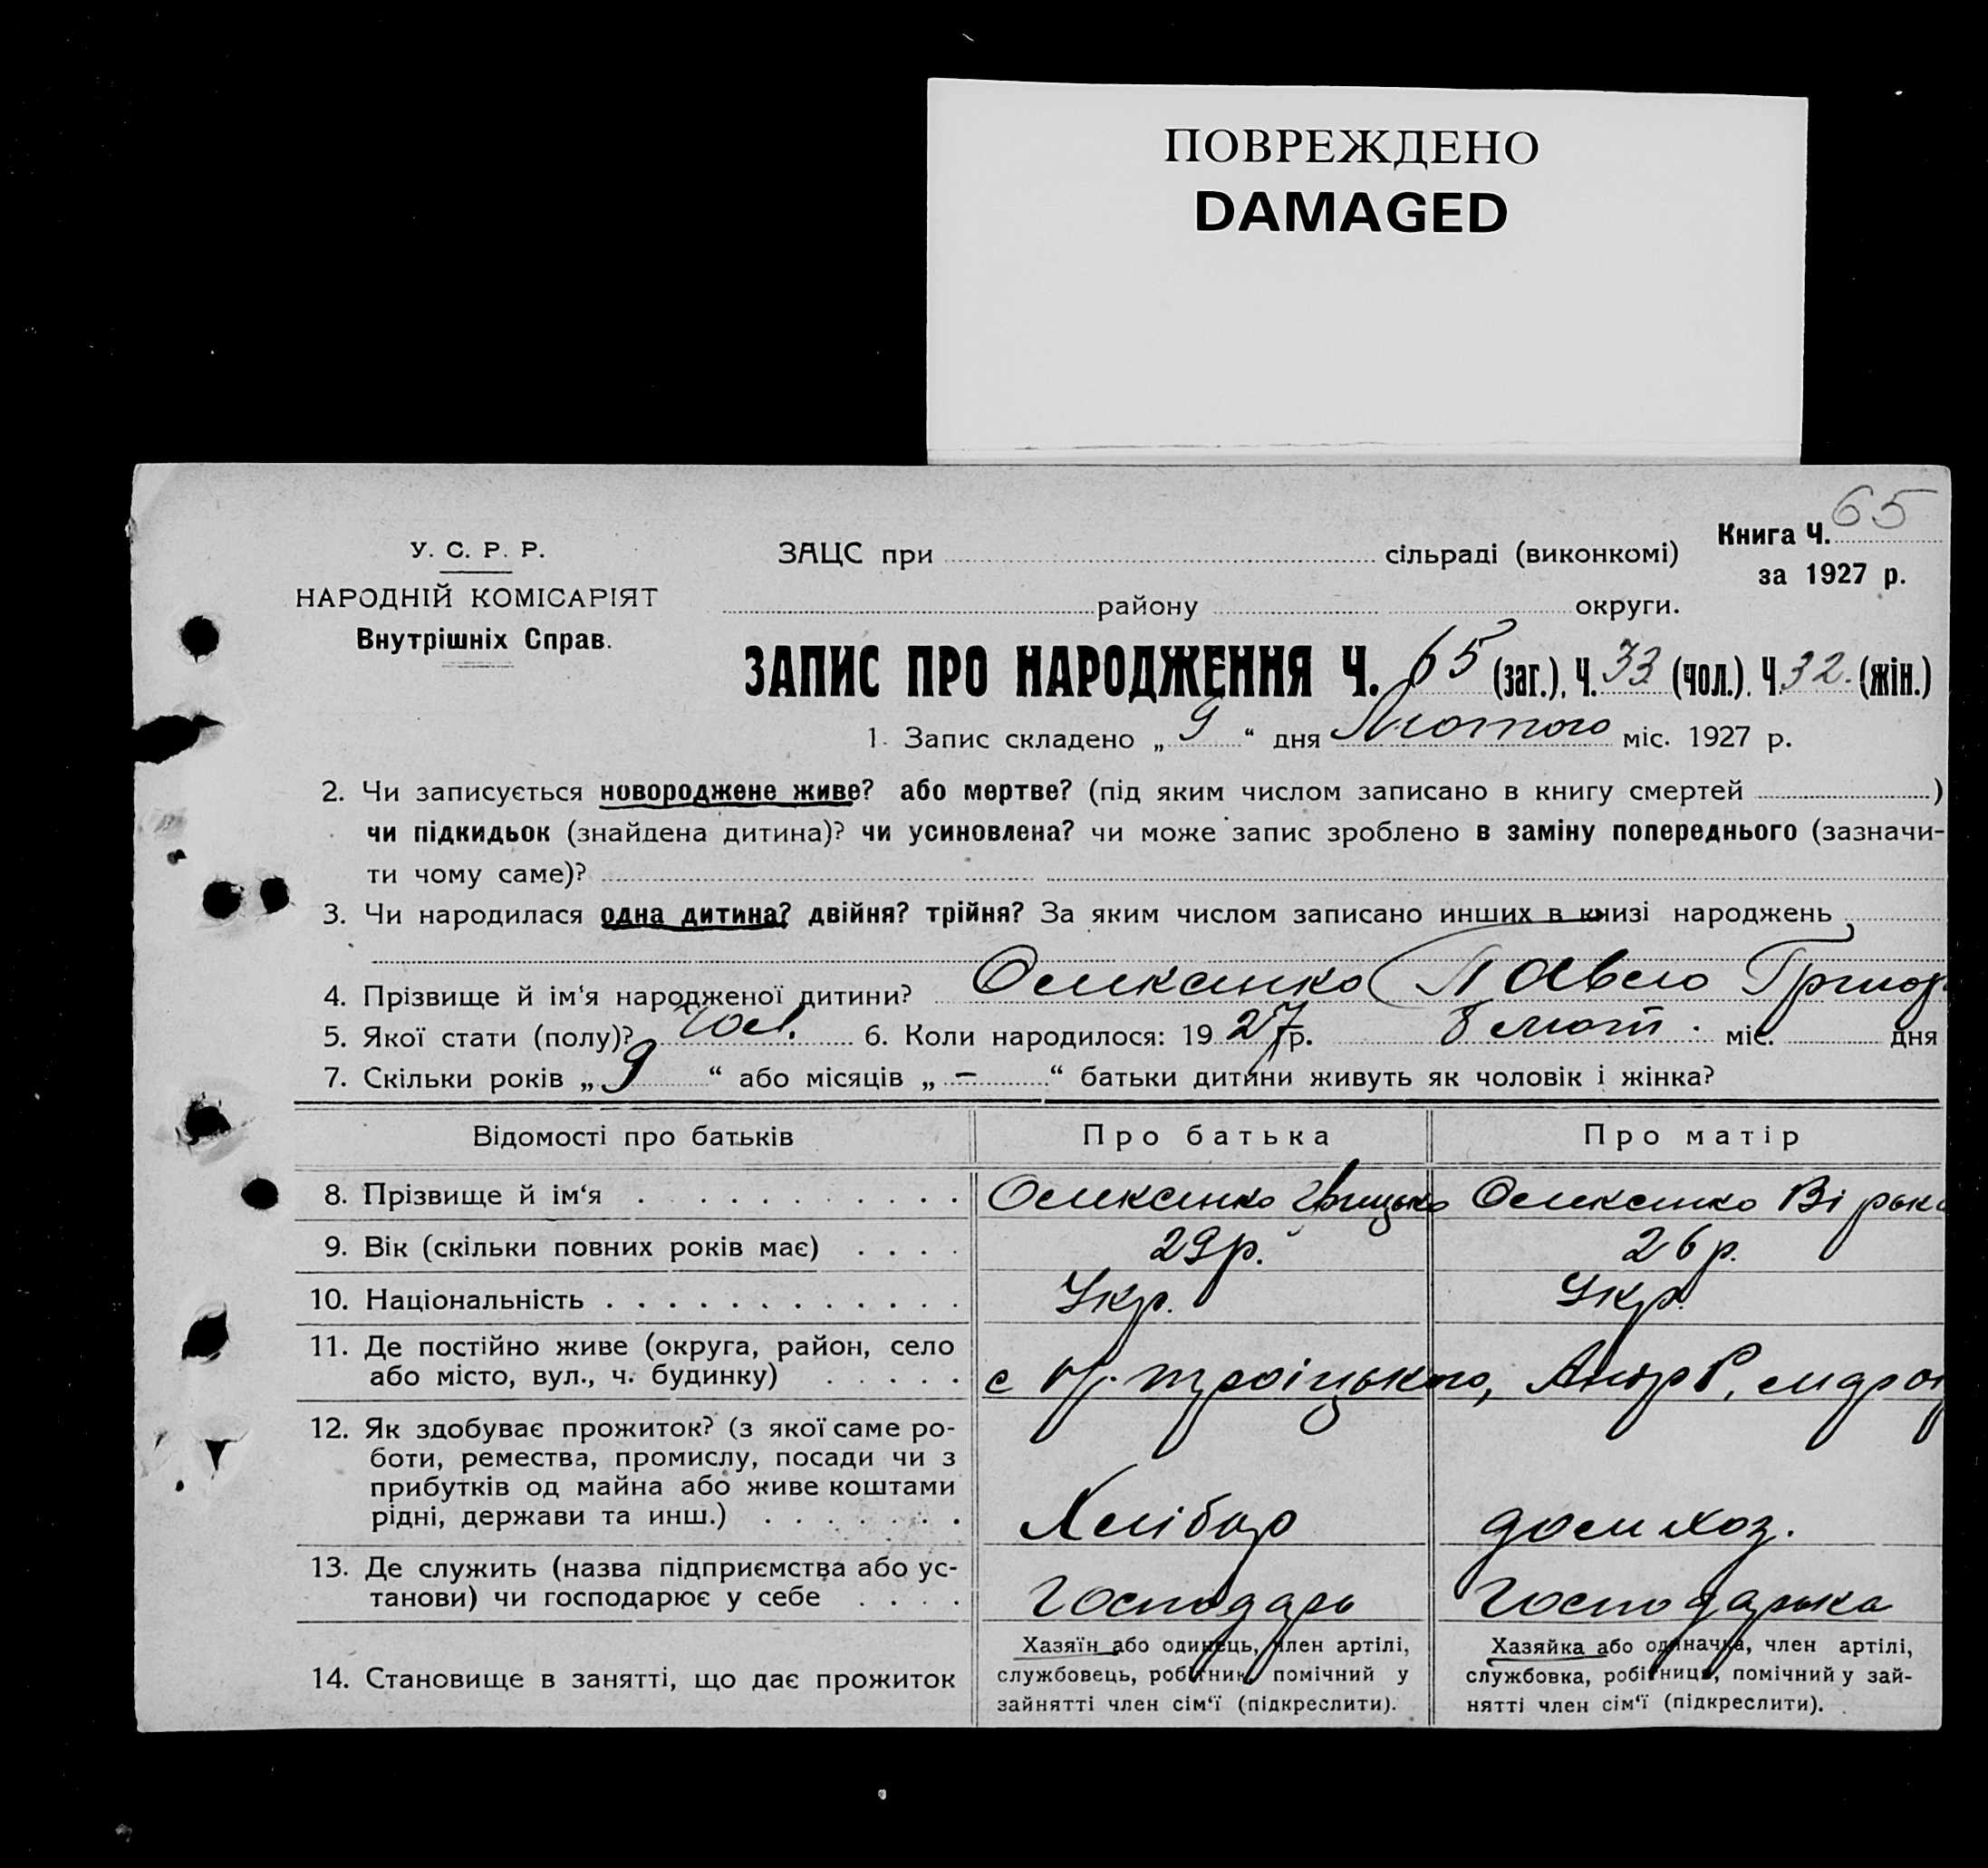 ПОВРЕЖДЕНО
DAMAGED
У. С. Р. Р.
НАРОДНІЙ КОМІСАРІЯТ
Внутрішніх Справ.
ЗАЦС при сільраді (виконкомі)
району округи.
Книга Ч. 65
за 1927 р.
ЗАПИС ПРО НАРОДЖЕННЯ Ч. 65 (заг.), Ч. 33 (чол.). Ч. 32. (жін.)
1. Запис складено „ 9 “ дня Лютого міс. 1927 р.
2. Чи записується новороджене живе? або мертве? (під яким числом записано в книгу смертей )
чи підкидьок (знайдена дитина)? чи усиновлена? чи може запис зроблено в заміну попереднього (зазначи-
ти чому саме)?
3. Чи народилася одна дитина? двійня? трійня? За яким числом записано инших в книзі народжень
4. Прізвище й ім‘я народженої дитини? Павло Григор
5. Якої стати (полу)? чол. 6. Коли народилося: 19 27 р. 8 лют. міс. дня
7. Скільки років „ 9 “ або місяців „ — “ батьки дитини живуть як чоловік і жінка?
Відомості про батьків Про батька Про матір
8. Прізвище й ім‘я Грицько Вірька
9. Вік (скільки повних років має) 29 р. 26 р.
10. Національність Укр. Укр.
11. Де постійно живе (округа, район, село
або місто, вул., ч. будинку) с троіцького,
12. Як здобуває прожиток? (з якої саме ро-
боти, ремества, промислу, посади чи з
прибутків од майна або живе коштами
рідні, держави та инш.) Хлібор дом хоз.
13. Де служить (назва підприємства або ус-
танови) чи господарює у себе Господарь Господарька
14. Становище в занятті, що дає прожиток
Хазяїн або одинець, член артілі,
службовець, робітник, помічний у
зайнятті член сім‘ї (підкреслити).
Хазяйка або одиначка, член артілі,
службовка, робітниця, помічний у зай-
нятті член сім‘ї (підкреслити).